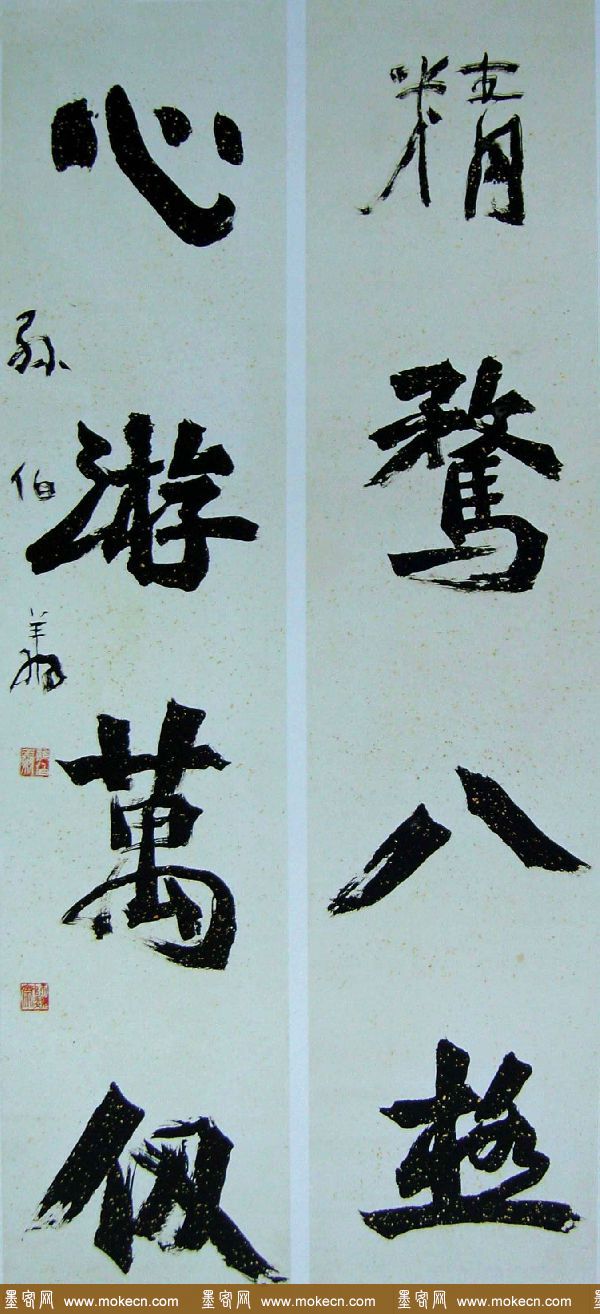 精骛八极
心游萬仞
孙伯翔
墨客网 www.mokecn.com 墨客网 www.mokecn.com 墨客网 www.mokecn.com